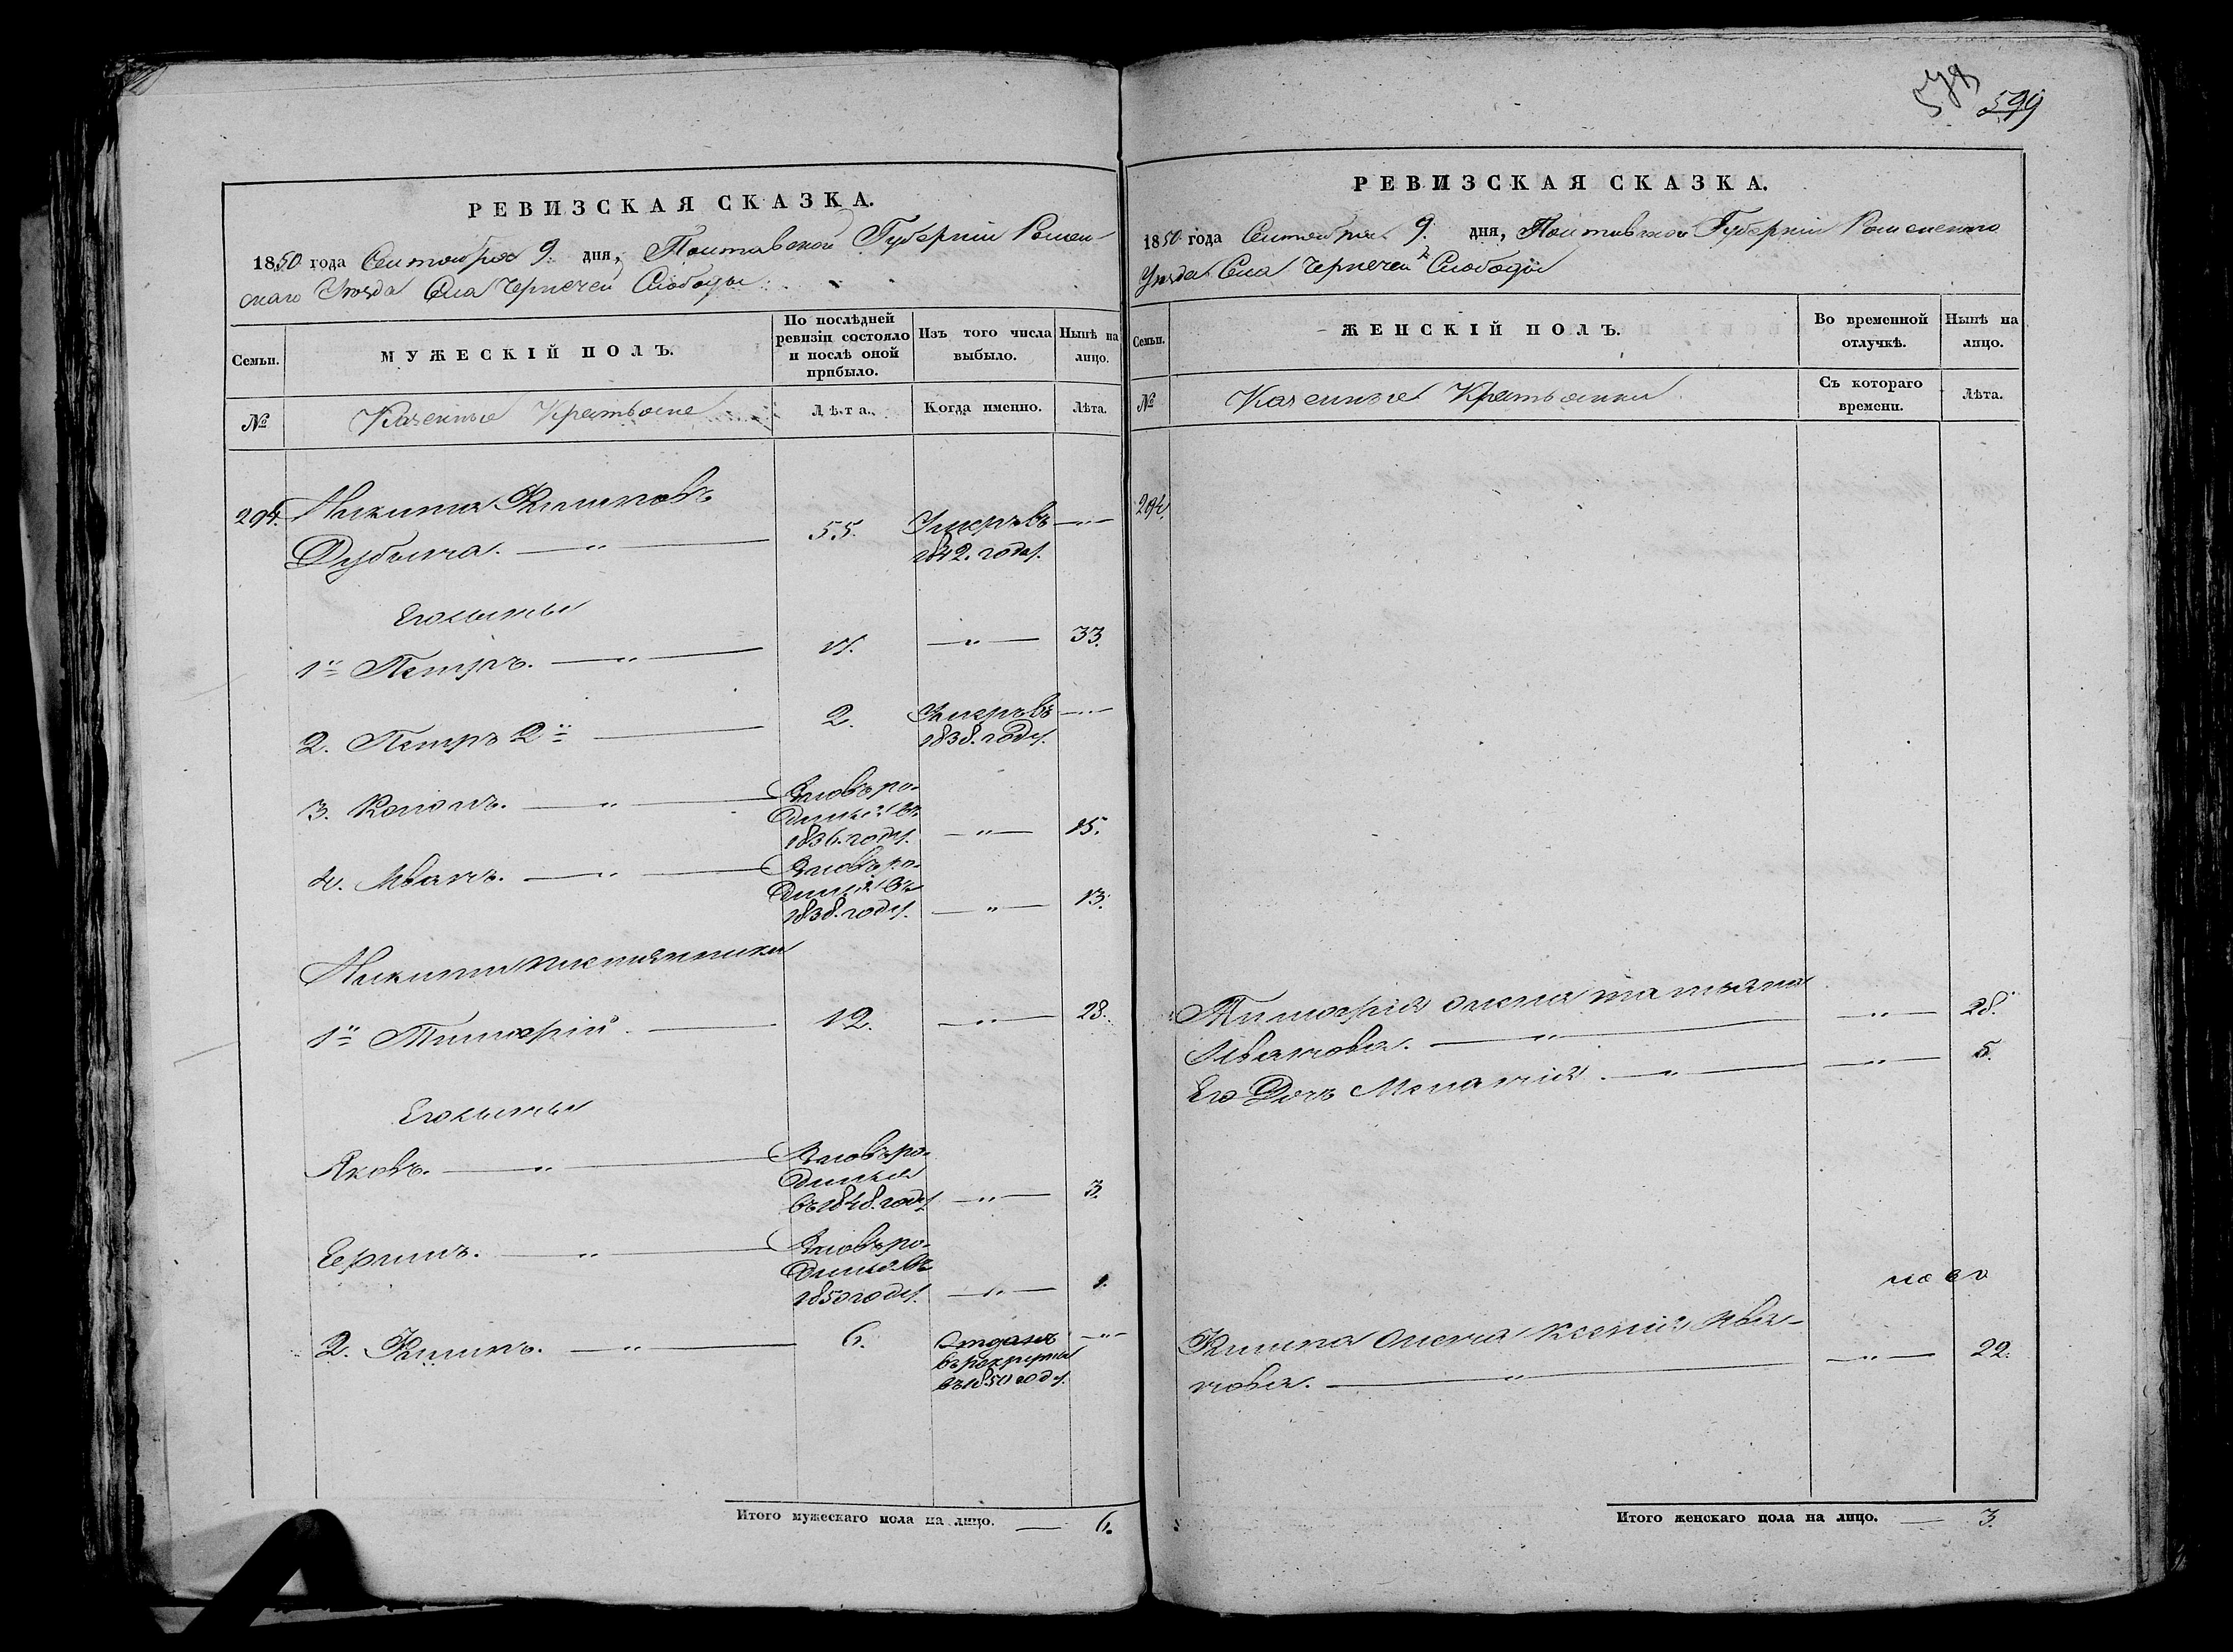 578
599
РЕВИЗСКАЯ СКАЗКА.
1850 года Сентября 9. дня, Полтавской Губерніи Ромен-
скаго Уѣзда Села Чернечей Слободы
Семьи.
МУЖЕСКІЙ ПОЛЪ.
По послѣдней
ревизіи состояло
и послѣ оной
прибыло.
Изъ того числа
выбыло.
Нынѣ на
лицо.
№
Казенные Крестьяне
Лѣта.
Когда именно.
Лѣта.
294. Никита
Дубына. 55. Умеръ въ
1842. году.
Его сыны
1й Петръ. 17. 33.
2. Петръ 2й 2. Умеръ въ
1838. году.
3. Кононъ. ро-
1836. году. 15.
4. Иванъ. ро-
1838. году. 13.
Никиты племянники
1й Тимофій. 12. 28.
Его сыны
Яковъ. ро-
дился
въ 1848. году 3.
ро-
дился въ
1850 году. 1.
2. 6. Отданъ
въ рекруты
въ 1850 году.
Итого мужескаго пола на лицо. 6.
РЕВИЗСКАЯ СКАЗКА.
1850 года Сентября 9. дня, Полтавской Губерніи Роменскаго
Уѣзда Села Чернечей Слободы
Семьи.
ЖЕНСКІЙ ПОЛЪ.
Во временной
отлучкѣ.
Нынѣ на
лицо.
№
Казенные Крестьянки
Съ котораго
времени.
Лѣта.
294.
Тимофія жена Татьяна
Иванова. 28.
Его Дочь Меланія. 5.
жена Ксенія Ива-
нова. 22.
Итого женскаго пола на лицо. 3.